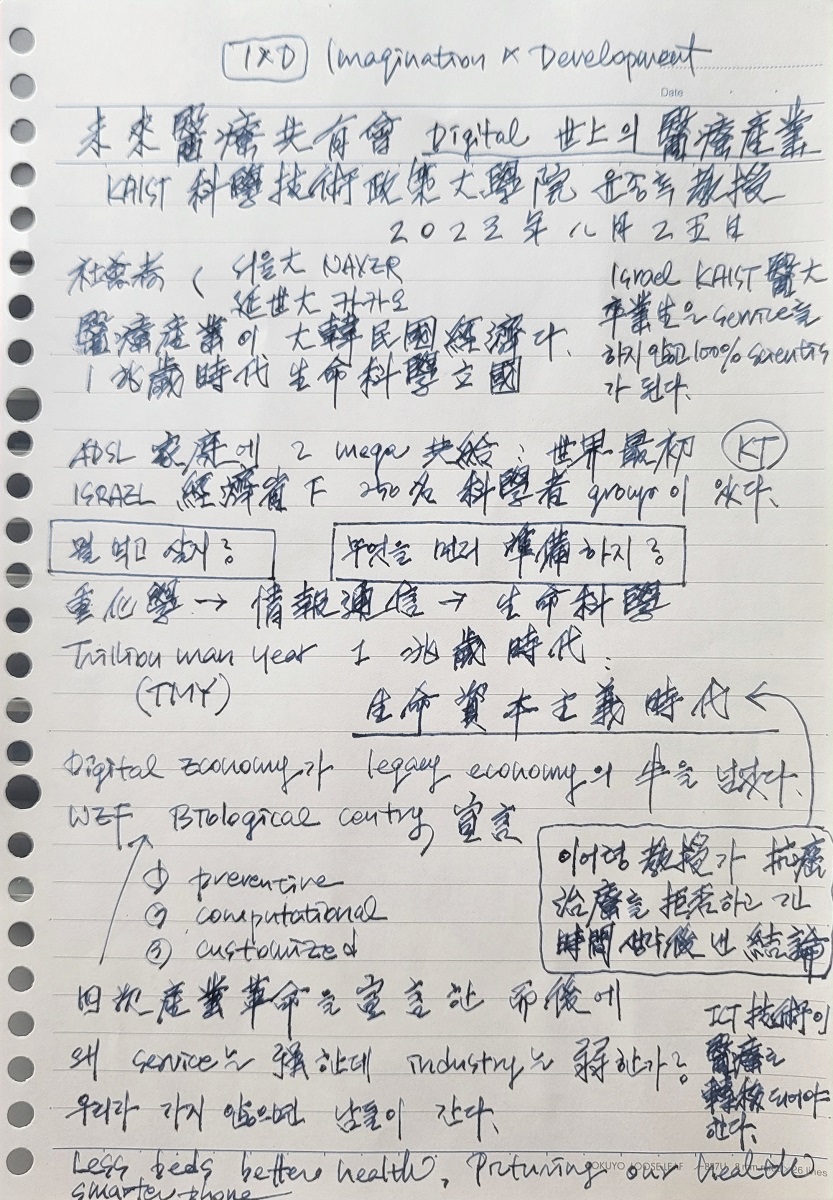 IXD Imagination × Development
Date
未來醫療共有會 Digital 世上의 醫療産業
KAIST 科學技術政策大學院 교수 教授
2023年 八月 二五日
社會者 〈 서울大 NAVER
延世大 카카오
醫療産業이 大韓民國 經濟다.
1兆歲時代 生命科學立國
Israel KAIST 醫大
卒業生은 service를
하지 않고 100% scientis
가 된다.
ADSL 家庭에 2 mega 共給 : 世界最初 KT
ISRAEL 經濟省下 250名 科學者 group이 있다.
뭘 먹고 살지?
무엇을 먼저 準備하지?
重化學 → 情報通信 → 生命科學
Trillion man year 1兆歲時代 :
(TMY)
生命資本主義時代
Digital Economy가 legacy economy의 半을 넘었다.
WEF Biological century 宣言
① preventive
② computational
③ customized
이어령 教授가 抗癌
治療를 拒否하고 긴
時間 後 낸 結論
四次産業革命을 宣言한 而後에
왜 service는 强한데 industry는 弱한가?
우리가 가지 않으면 남들이 간다.
ICT 技術이
醫療로
轉換되어야
한다.
Less beds better health, our health
smarter phone
KOKUYO LOOSE-LEAF